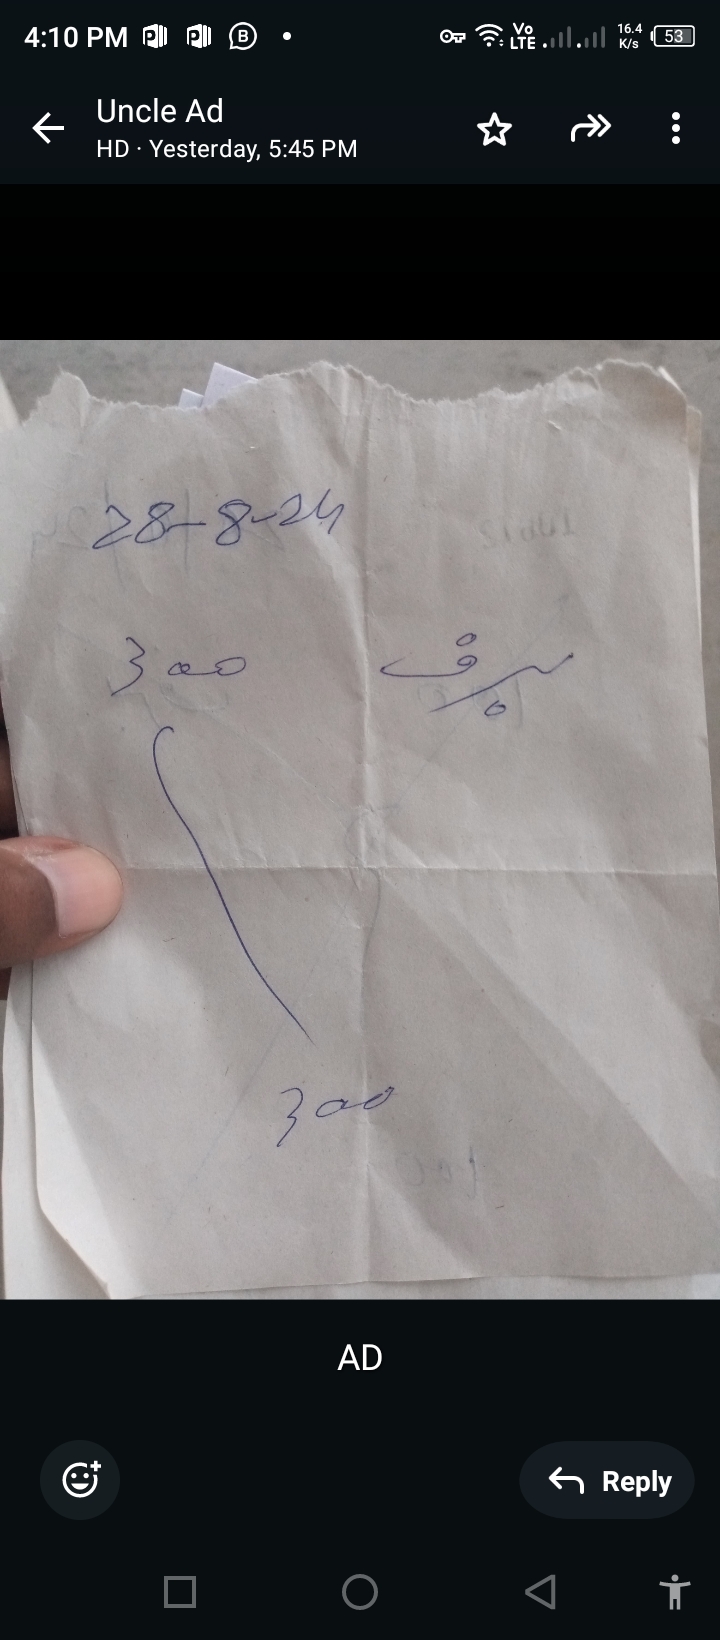 4:10 PM VoLTE 16.4 K/s 53
Uncle Ad
HD · Yesterday, 5:45 PM
28-8-24
سرف 300
300
AD
Reply